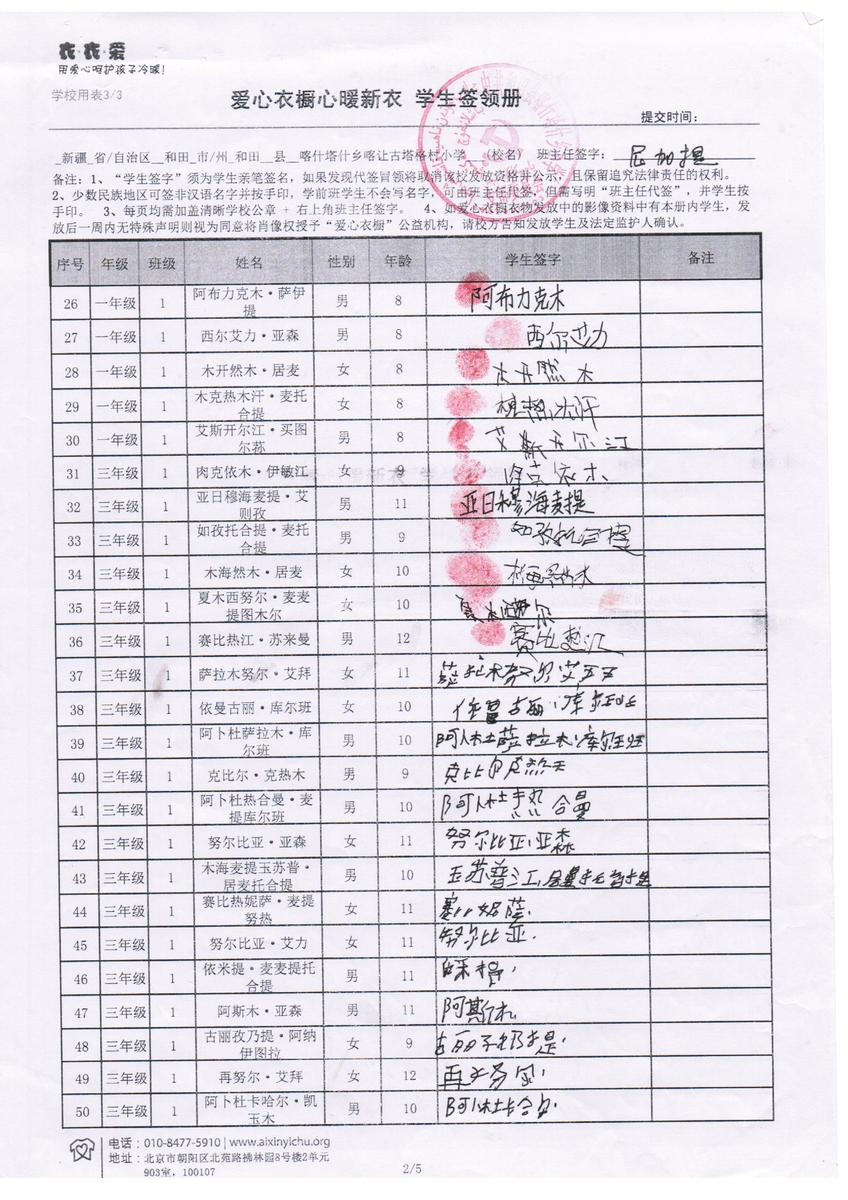 衣·衣·爱
用爱心呵护孩子冷暖!
学校用表3/3
爱心衣橱心暖新衣 学生签领册
提交时间:
新疆 省/自治区 和田 市/州 和田 县 喀什塔什乡喀让古塔格村小学 (校名) 班主任签字: 尼加提
备注:1、“学生签字”须为学生亲笔签名,如果发现代签冒领将取消该校发放资格并公示,且保留追究法律责任的权利。
2、少数民族地区可签非汉语名字并按手印,学前班学生不会写名字,可由班主任代签,但需写明“班主任代签”,并学生按
手印。 3、每页均需加盖清晰学校公章 + 右上角班主任签字。 4、如爱心衣橱衣物发放中的影像资料中有本册内学生,发
放后一周内无特殊声明则视为同意将肖像权授予“爱心衣橱”公益机构,请校方告知发放学生及法定监护人确认。
序号 年级 班级 姓名 性别 年龄 学生签字 备注
26 一年级 1 阿布力克木·萨伊提 男 8 阿布力克木
27 一年级 1 西尔艾力·亚森 男 8 西尔艾力
28 一年级 1 木开然木·居麦 女 8 木开然木
29 一年级 1 木克热木汗·麦托合提 女 8
30 一年级 1 艾斯开尔江·买图尔荪 男 8 艾斯开尔江
31 三年级 1 肉克依木·伊敏江 女 9
32 三年级 1 亚日穆海麦提·艾则孜 男 11 亚日穆海麦提
33 三年级 1 如孜托合提·麦托合提 男 9 如孜托合提
34 三年级 1 木海然木·居麦 女 10
35 三年级 1 夏木西努尔·麦麦提图木尔 女 10
36 三年级 1 赛比热江·苏来曼 男 12 赛比热江
37 三年级 1 萨拉木努尔·艾拜 女 11 萨拉木努尔
38 三年级 1 依曼古丽·库尔班 女 10
39 三年级 1 阿卜杜萨拉木·库尔班 男 10 阿卜杜萨拉木·库尔班
40 三年级 1 克比尔·克热木 男 9 克比尔
41 三年级 1 阿卜杜热合曼·麦提库尔班 男 10 阿卜杜热合曼
42 三年级 1 努尔比亚·亚森 女 11 努尔比亚·亚森
43 三年级 1 木海麦提玉苏普·居麦托合提 男 10 玉苏普江
44 三年级 1 赛比热妮萨·麦提努热 女 11
45 三年级 1 努尔比亚·艾力 女 11 努尔比亚·
46 三年级 1 依米提·麦麦提托合提 男 11
47 三年级 1 阿斯木·亚森 男 11 阿斯木
48 三年级 1 古丽孜乃提·阿纳伊图拉 女 9
49 三年级 1 再努尔·艾拜 女 12
50 三年级 1 阿卜杜卡哈尔·凯玉木 男 10
电话:010-8477-5910 | www.aixinyichu.org
地址:北京市朝阳区北苑路拂林园8号楼2单元
903室,100107
2/5